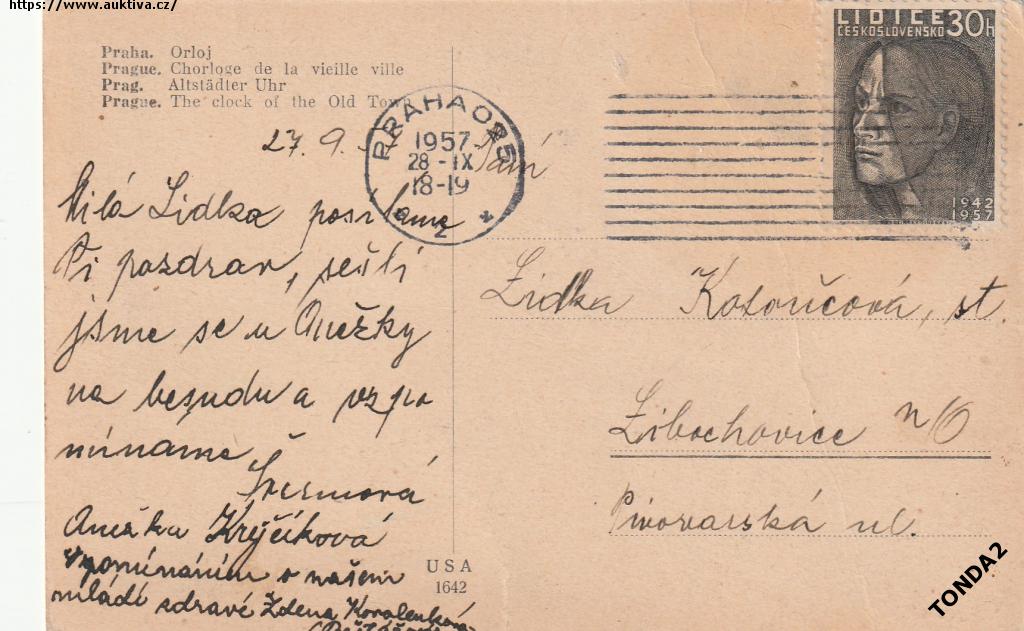 https://www.auktiva.cz/
Praha. Orloj
Prague. Chorloge de la vieille ville
Prag. Altstädter Uhr
Prague. The clock of the Old Town
27. 9.
Milá Lidka posíláme
Ti pozdrav, sešli
jsme se u Anežky
na besedu a vzpo
mínáme
Anežka Krejčíková
vzpomínáním o našem
mládí zdravé Zdena Kovalenková
USA
1642
PRAHA 025
1957
28 - IX
18-19
2
LIDICE
ČESKOSLOVENSKO 30h
1942
1957
Paní
Lidka Kozoučová, st.
Libochovice n/O
Pivovarská ul.
TONDA2